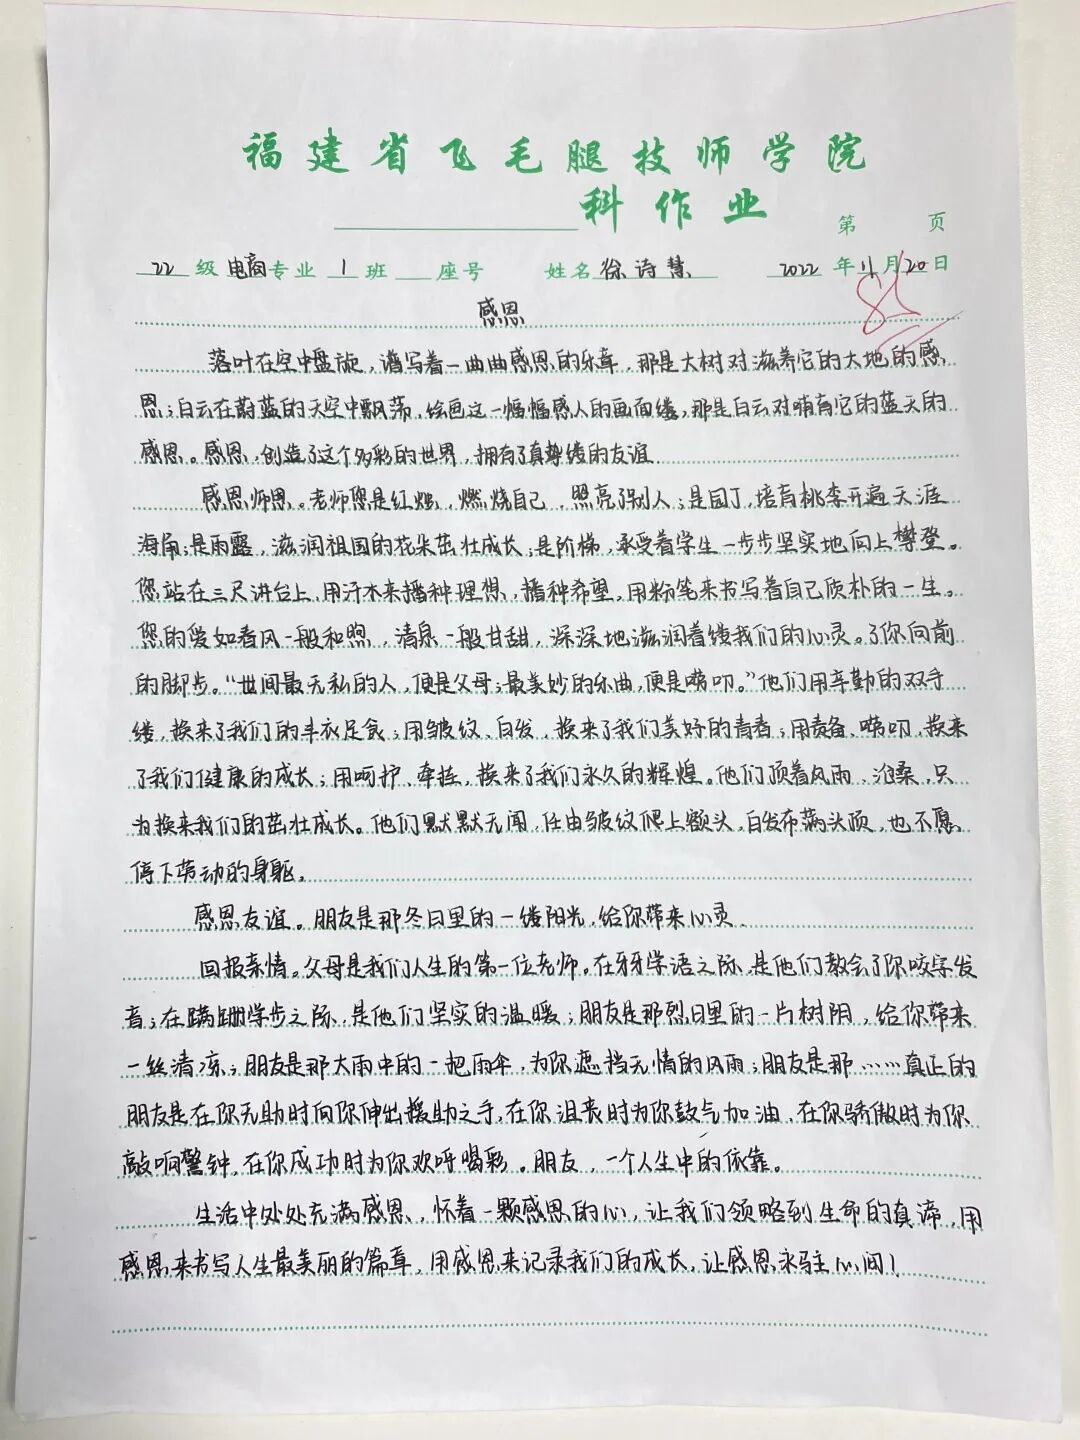 福建省飞毛腿技师学院
科作业
第 页
22级电商专业1班 座号 姓名徐诗慧 2022年11月20日
85
感恩
落叶在空中盘旋，谱写着一曲曲感恩的乐章，那是大树对滋养它的大地的感
恩；白云在蔚蓝的天空中飘荡，绘画这一幅幅感人的画面缕，那是白云对哺育它的蓝天的
感恩。感恩，创造了这个多彩的世界，拥有了真挚缕的友谊
感恩师恩。老师您是红烛，燃烧自己，照亮了别人；是园丁，培育桃李开遍天涯
海角；是雨露，滋润祖国的花朵茁壮成长；是阶梯，承受着学生一步步坚实地向上攀登。
您站在三尺讲台上，用汗水来播种理想，播种希望，用粉笔来书写着自己质朴的一生。
您的爱如春风一般和煦，清泉一般甘甜，深深地滋润着缕我们的心灵。了你向前
的脚步。“世间最无私的人，便是父母；最美妙的乐曲，便是唠叨。”他们用辛勤的双手
缕，换来了我们的丰衣足食；用皱纹、白发，换来了我们美好的青春；用责备、唠叨，换来
了我们健康的成长；用呵护、牵挂，换来了我们永久的辉煌。他们顶着风雨、沧桑，只
为换来我们的茁壮成长。他们默默无闻，任由皱纹爬上额头，白发布满头顶，也不愿
停下劳动的身躯。
感恩友谊。朋友是那冬日里的一缕阳光，给你带来心灵
回报亲情。父母是我们人生的第一位老师。在牙牙学语之际，是他们教会了你咬字发
音；在蹒跚学步之际，是他们坚实的温暖；朋友是那烈日里的一片树阴，给你带来
一丝清凉；朋友是那大雨中的一把雨伞，为你遮挡无情的风雨；朋友是那……真正的
朋友是在你无助时向你伸出援助之手，在你沮丧时为你鼓气加油，在你骄傲时为你
敲响警钟，在你成功时为你欢呼喝彩。朋友，一个人生中的依靠。
生活中处处充满感恩，怀着一颗感恩的心，让我们领略到生命的真谛，用
感恩来书写人生最美丽的篇章，用感恩来记录我们的成长，让感恩永驻心间！